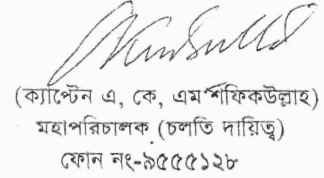 (ক্যাপ্টেন এ, কে, এম শফিকউল্লাহ)
মহাপরিচালক (চলতি দায়িত্ব)
ফোন নং-৯৫৫৫১২৮